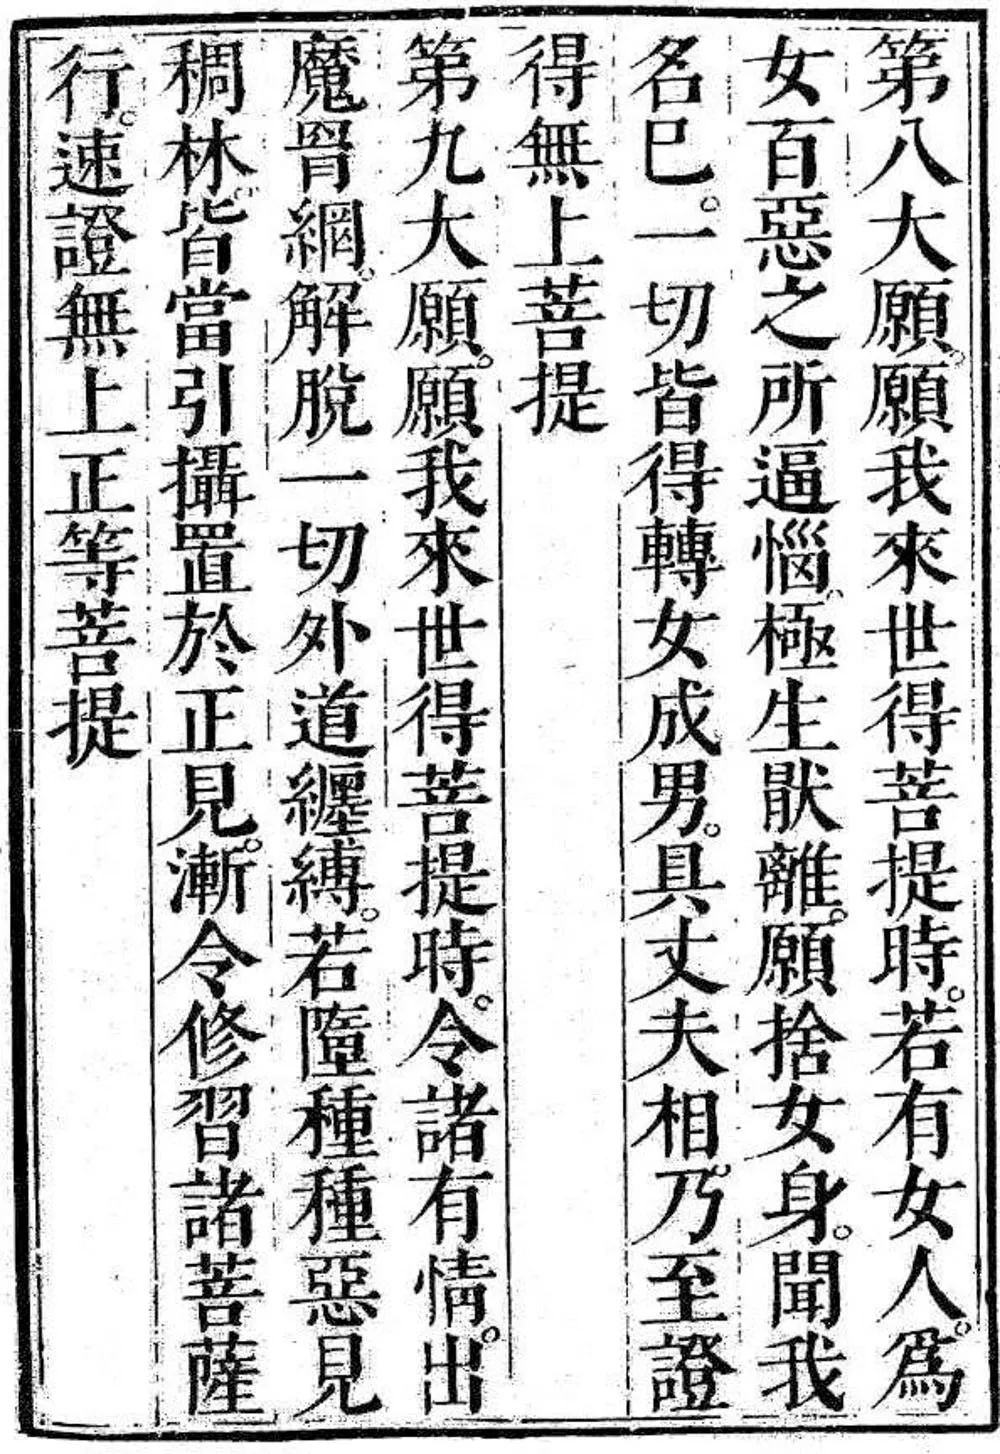 第八大願。願我來世得菩提時。若有女人。爲
女百惡之所逼惱。極生猒離。願捨女身。聞我
名巳。一切皆得轉女成男。具丈夫相。乃至證
得無上菩提
第九大願。願我來世得菩提時。令諸有情。出
魔罥網。解脫一切外道纏縛。若墮種種惡見
稠林。皆當引攝置於正見。漸令修習諸菩薩
行。速證無上正等菩提